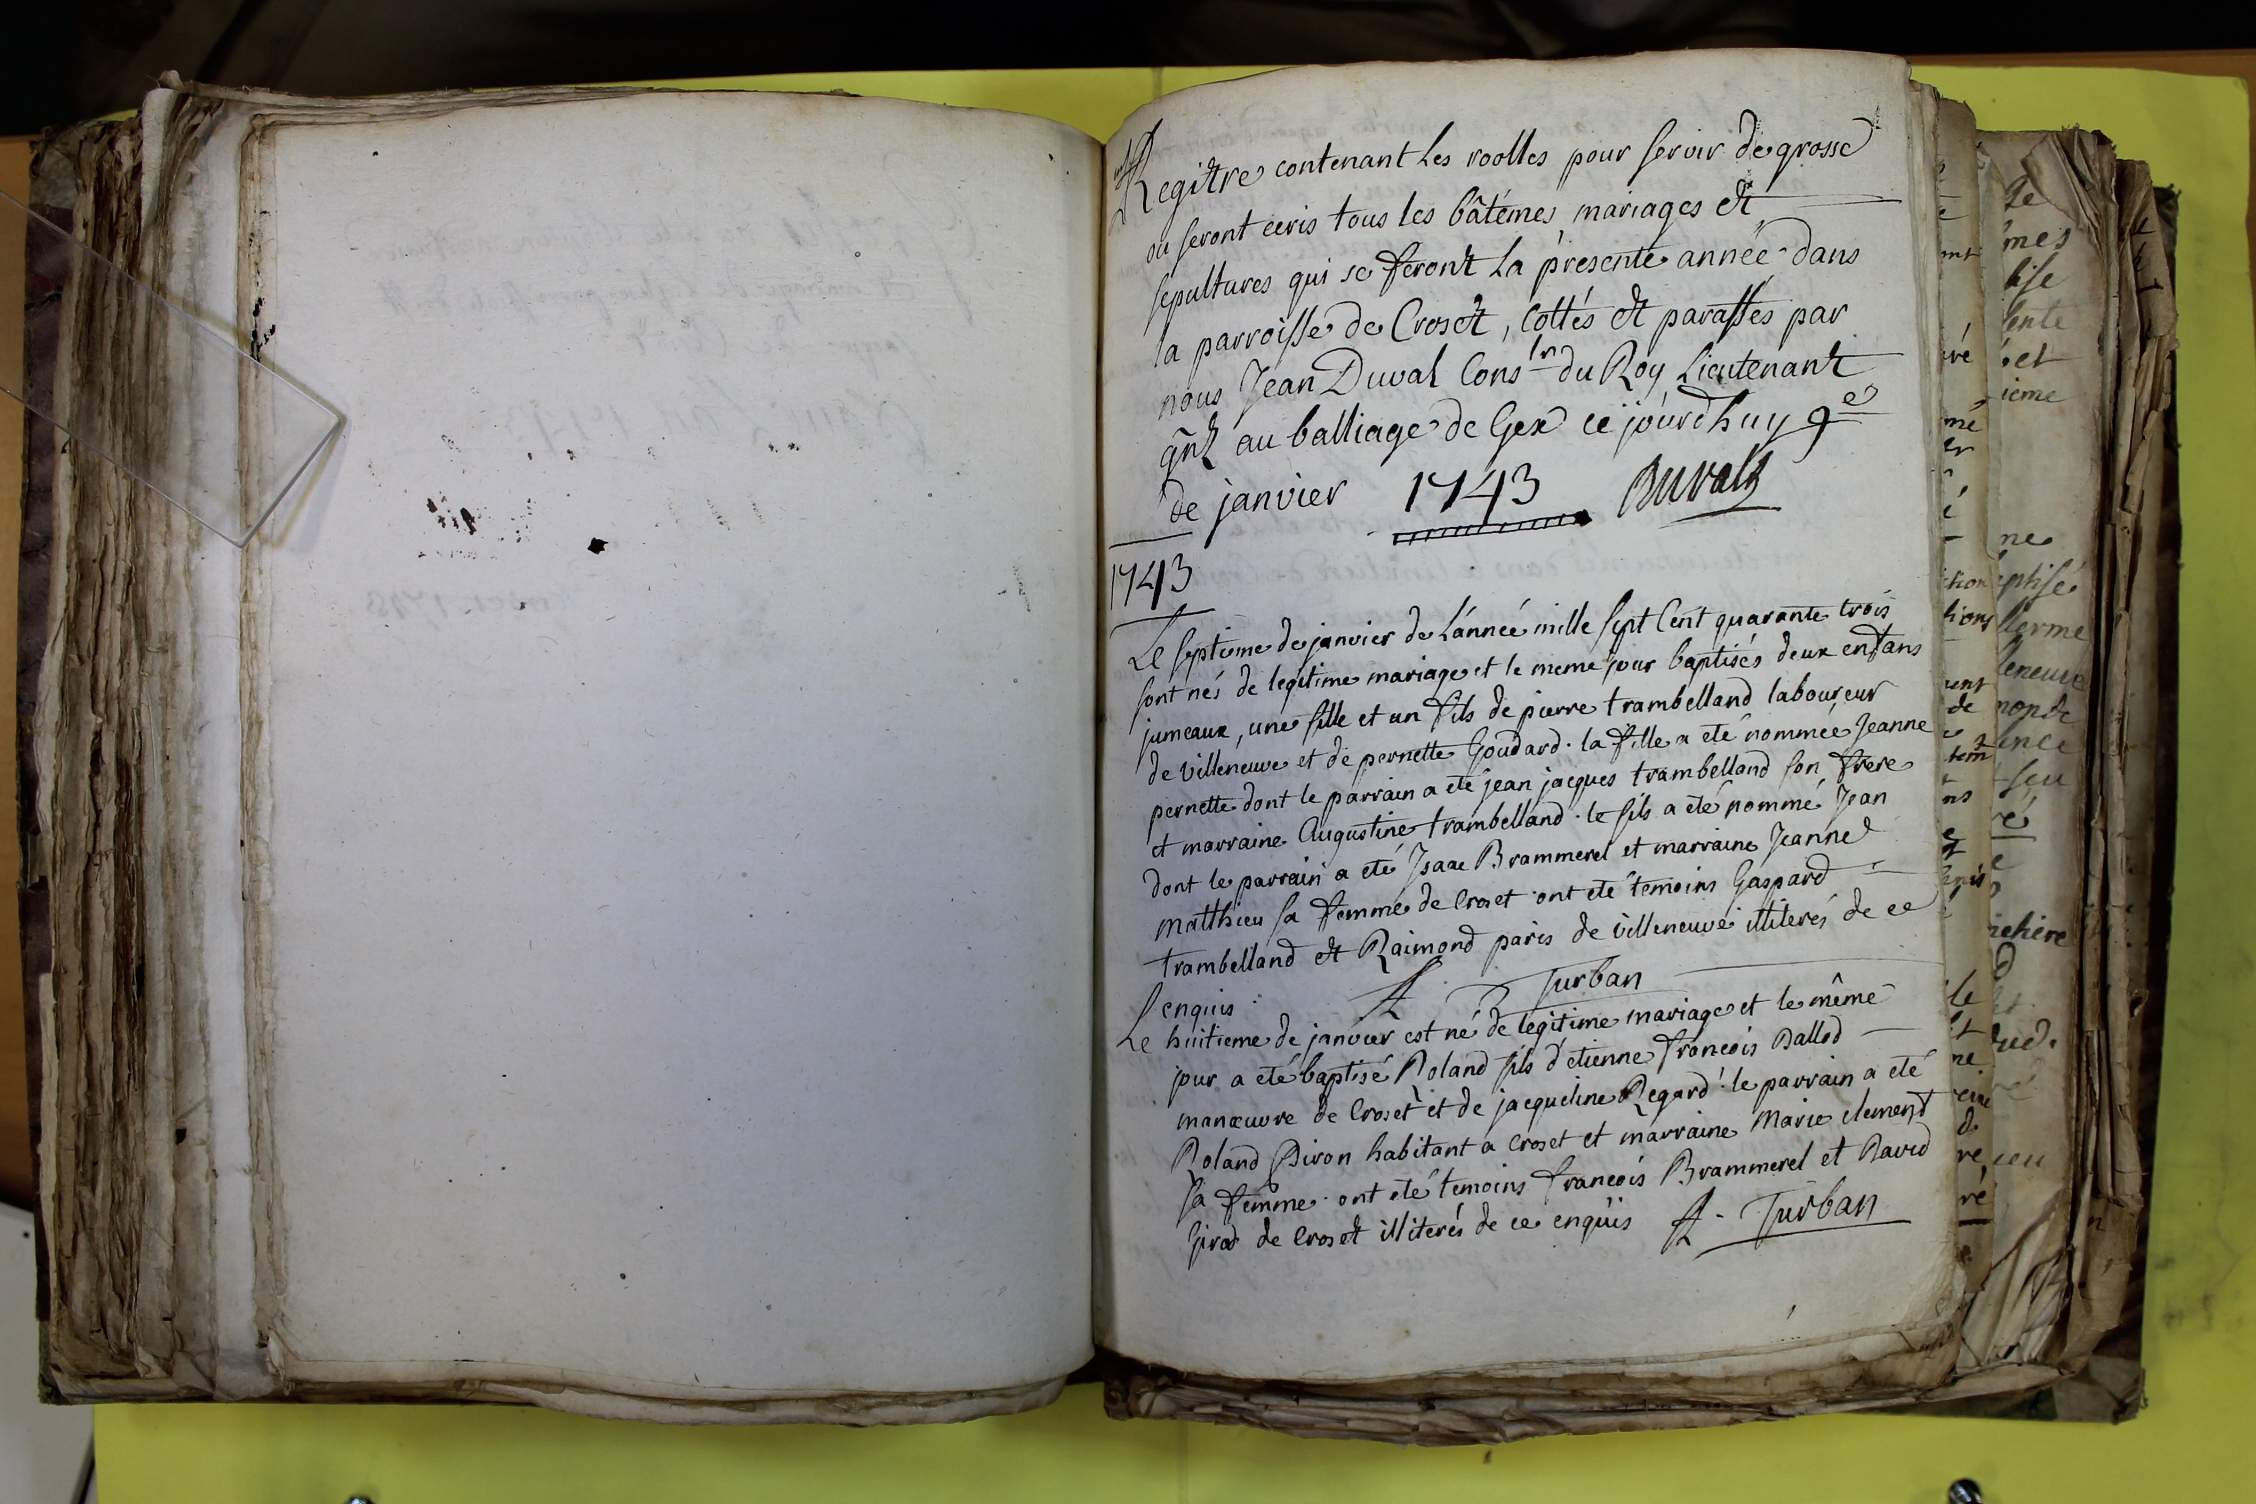 Regître contenant les roolles pour servir de grosse
ou seront ecris tous les bâtémes, mariages et
sepultures qui se feront la présente année dans
la parroisse de Croset, cottés et paraffés par
nous Jean Duval Cons.er du Roy Lieutenant
gñl au balliage de Gex ce jourdhuy 9e
de janvier 1743 Duval
1743
Le septieme de janvier de l'année mille sept cent quarante trois
sont nés de legitime mariage et le meme jour baptisés deux enfans
jumeaux, une fille et un fils de pierre trambelland laboureur
de villeneuve et de pernette Goudard. la fille a eté nommée Jeanne
pernette dont le parrain a eté jean jacques trambelland son frere
et marraine Augustine trambelland. le fils a eté nommé Jean
dont le parrain a eté Isaac Brammerel et marraine Jeanne
Matthieu sa femme de Croset ont eté temoins Gaspard
trambelland et Raimond paris de villeneuve illiterés de ce
enquis Turban
Le huitieme de janvier est né de legitime mariage et le même
jour a eté baptisé Roland fils d'etienne françois Dallod
manœuvre de Croset et de jacqueline Regard. le parrain a eté
Roland Piron habitant a Croset et marraine Marie clement
sa femme. ont eté temoins françois Brammerel et David
Girod de Croset illiterés de ce enquis Turban